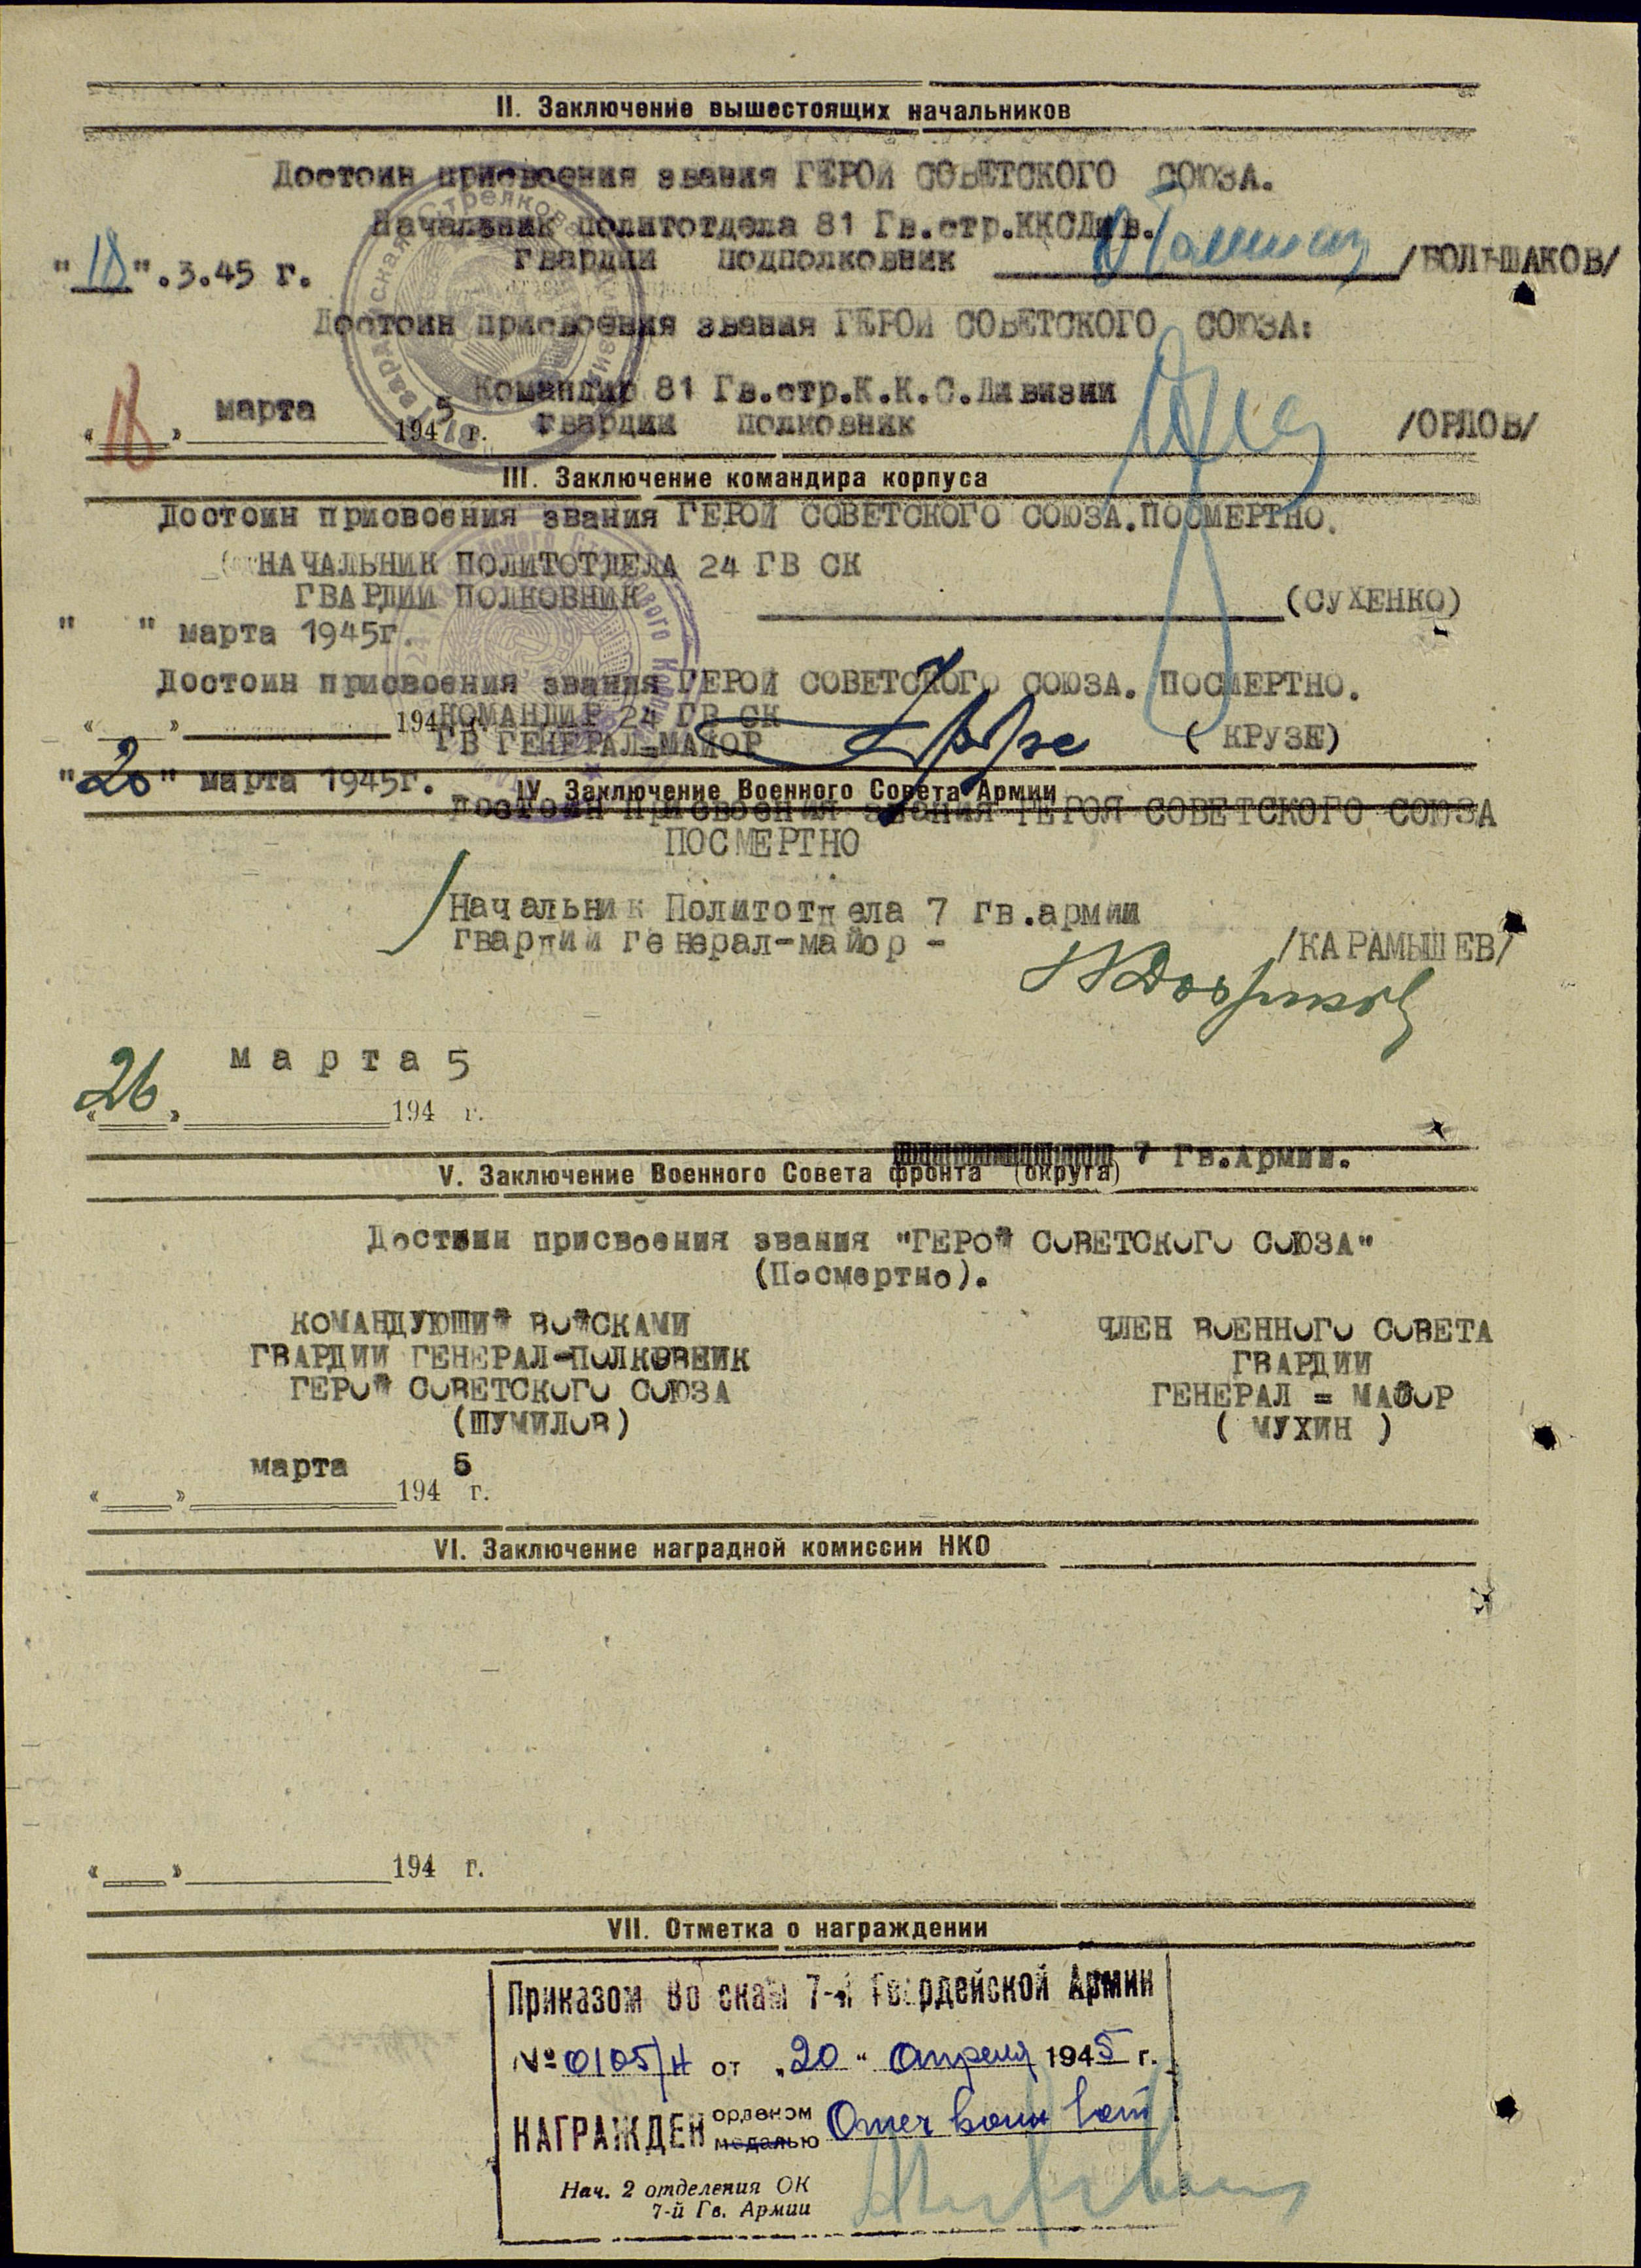 II. Заключение вышестоящих начальников
Достоин присвоения звания ГЕРОЙ СОВЕТСКОГО СОЮЗА.
Начальник политотдела 81 Гв.стр.ККСДив.
"18".3.45 г. гвардии подполковник /БОЛЬШАКОВ/
Достоин присвоения звания ГЕРОЙ СОВЕТСКОГО СОЮЗА:
Командир 81 Гв.стр.К.К.С.Дивизии
«18» марта 1945 г. гвардии полковник /ОРЛОВ/
III. Заключение командира корпуса
Достоин присвоения звания ГЕРОЙ СОВЕТСКОГО СОЮЗА.ПОСМЕРТНО.
НАЧАЛЬНИК ПОЛИТОТДЕЛА 24 ГВ СК
ГВАРДИИ ПОЛКОВНИК (СУХЕНКО)
" " марта 1945г.
Достоин присвоения звания ГЕРОЙ СОВЕТСКОГО СОЮЗА. ПОСМЕРТНО.
« » 194 КОМАНДИР 24 ГВ СК
ГВ ГЕНЕРАЛ-МАЙОР (КРУЗЕ)
"20" марта 1945г.
IV. Заключение Военного Совета Армии
Достоин присвоения звания ГЕРОЯ СОВЕТСКОГО СОЮЗА
ПОСМЕРТНО
Начальник Политотдела 7 гв.армии
гвардии генерал-майор - /КАРАМЫШЕВ/
марта 5
«26» 194 г.
7 Гв.Армии.
V. Заключение Военного Совета фронта (округа)
Достоин присвоения звания "ГЕРОЙ СОВЕТСКОГО СОЮЗА"
(Посмертно).
КОМАНДУЮЩИЙ ВОЙСКАМИ
ГВАРДИИ ГЕНЕРАЛ-ПОЛКОВНИК
ГЕРОЙ СОВЕТСКОГО СОЮЗА
(ШУМИЛОВ)
ЧЛЕН ВОЕННОГО СОВЕТА
ГВАРДИИ
ГЕНЕРАЛ = МАЙОР
( МУХИН )
марта 5
« » 194 г.
VI. Заключение наградной комиссии НКО
« » 194 г.
VII. Отметка о награждении
Приказом Войскам 7-й Гвардейской Армии
№ 0105/н от „20“ Апреля 1945 г.
НАГРАЖДЕН орденом
медалью Отеч войн I ст
Нач. 2 отделения ОК
7-й Гв. Армии